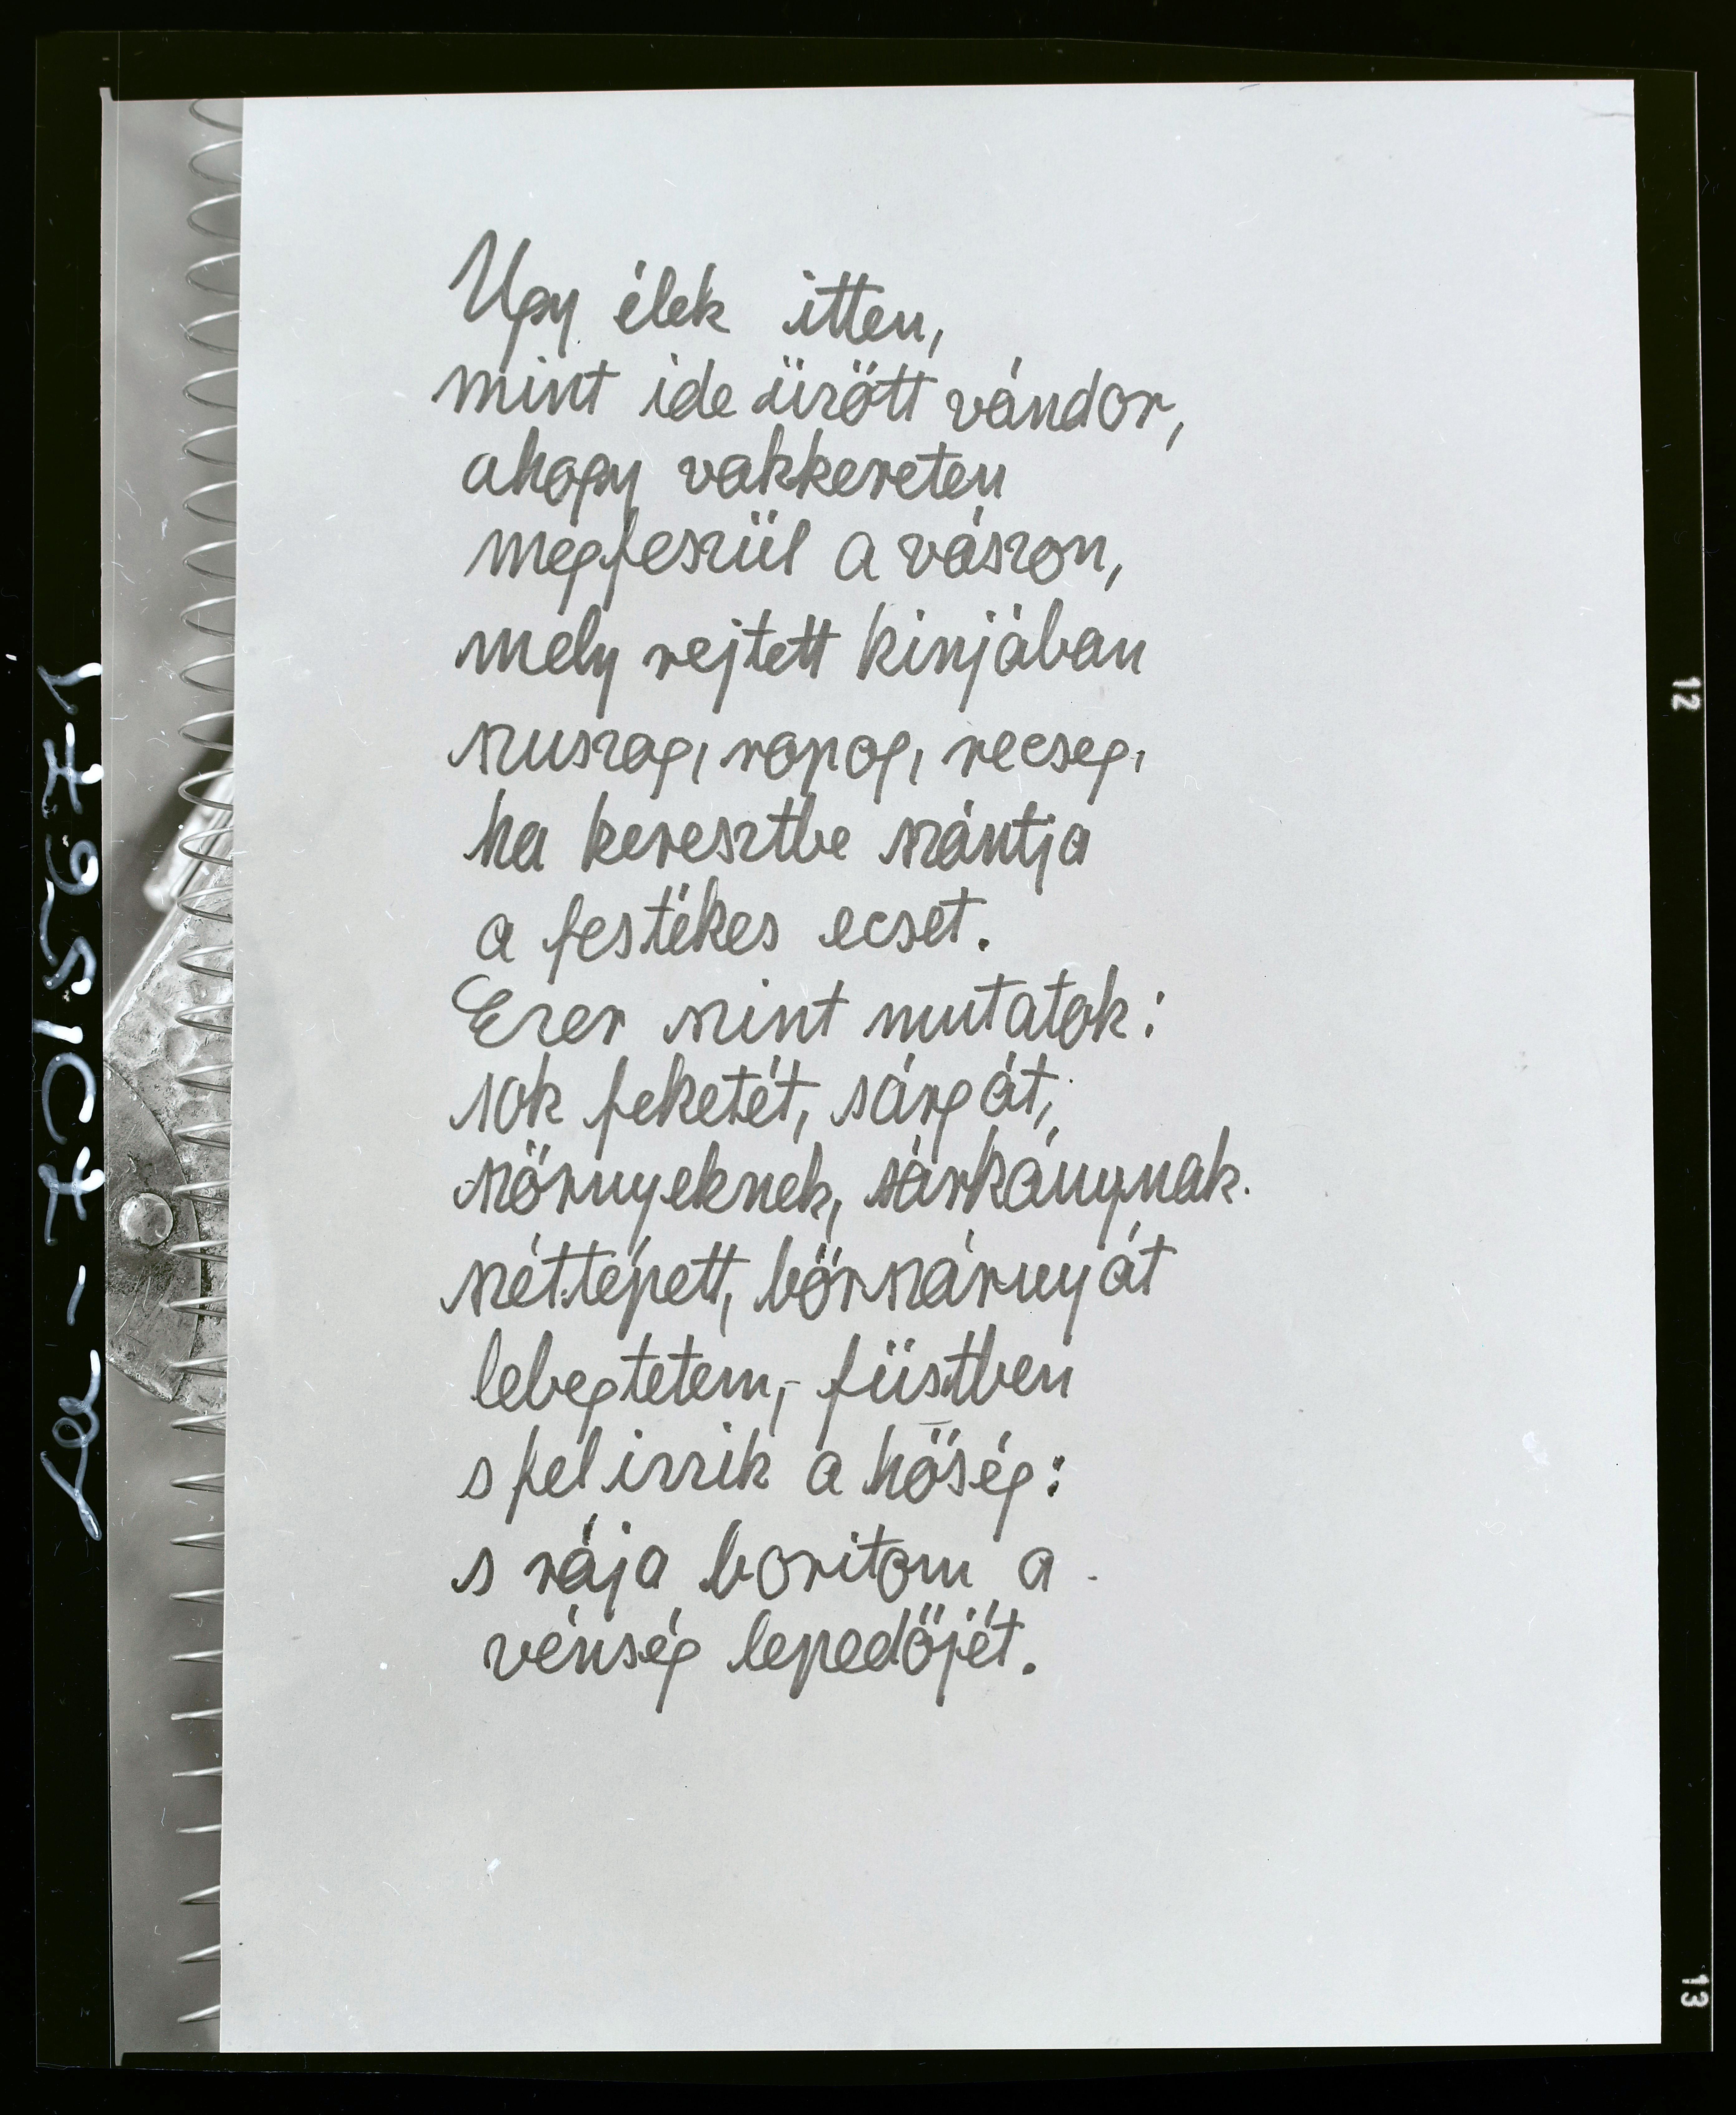 Ugy élek itten,
mint ide üzött vándor,
ahogy vakkereten
megfeszül a vászon,
mely rejtett kinjában
szuszog, ropog, recseg,
ha keresztbe szántja
a festékes ecset.
Ezer szint mutatok:
sok feketét, sárgát,
szörnyeknek, sárkánynak.
széttépett, bőrszárnyát
lebegtetem,- füstben
s fel izzik a hőség:
s rája boritom a
vénség lepedőjét.
12
13